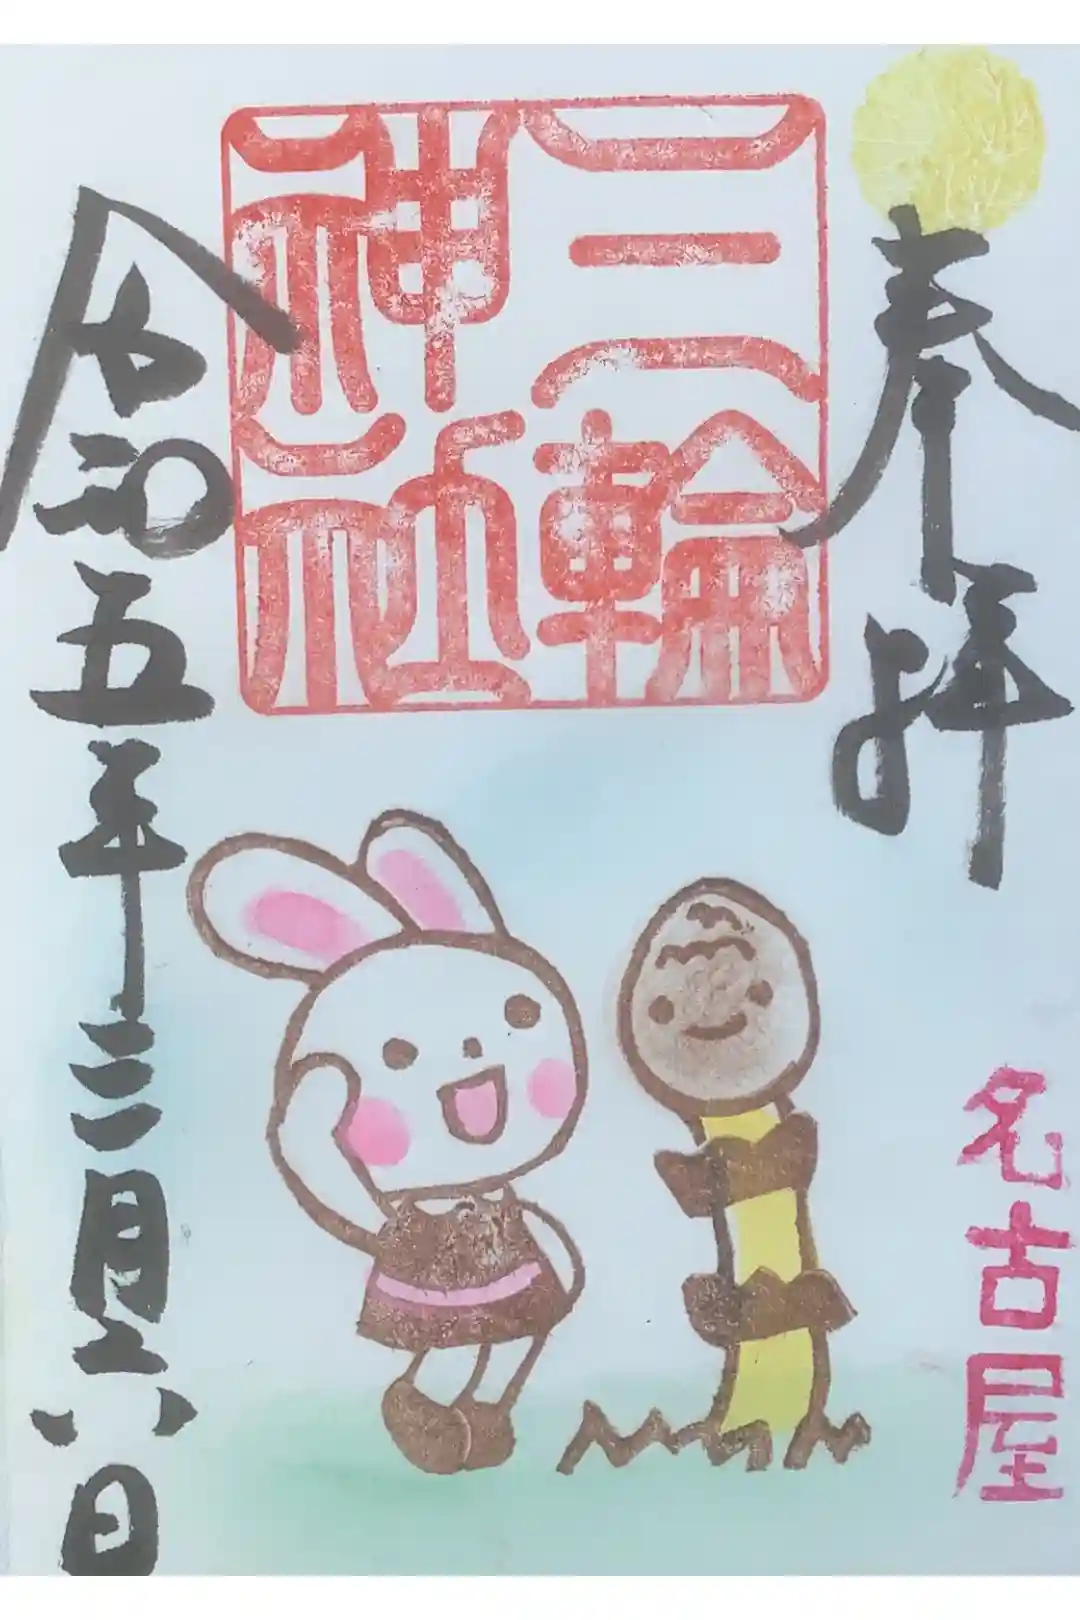 奉拝
三輪
神社
名古屋
令和五年三月十六日